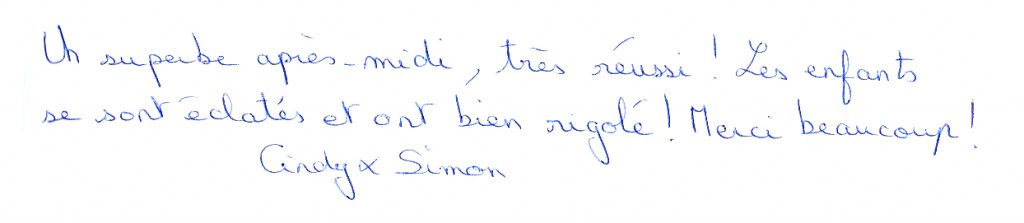 Un superbe après-midi, très réussi ! Les enfants
se sont éclatés et ont bien rigolé ! Merci beaucoup !
Cindy & Simon